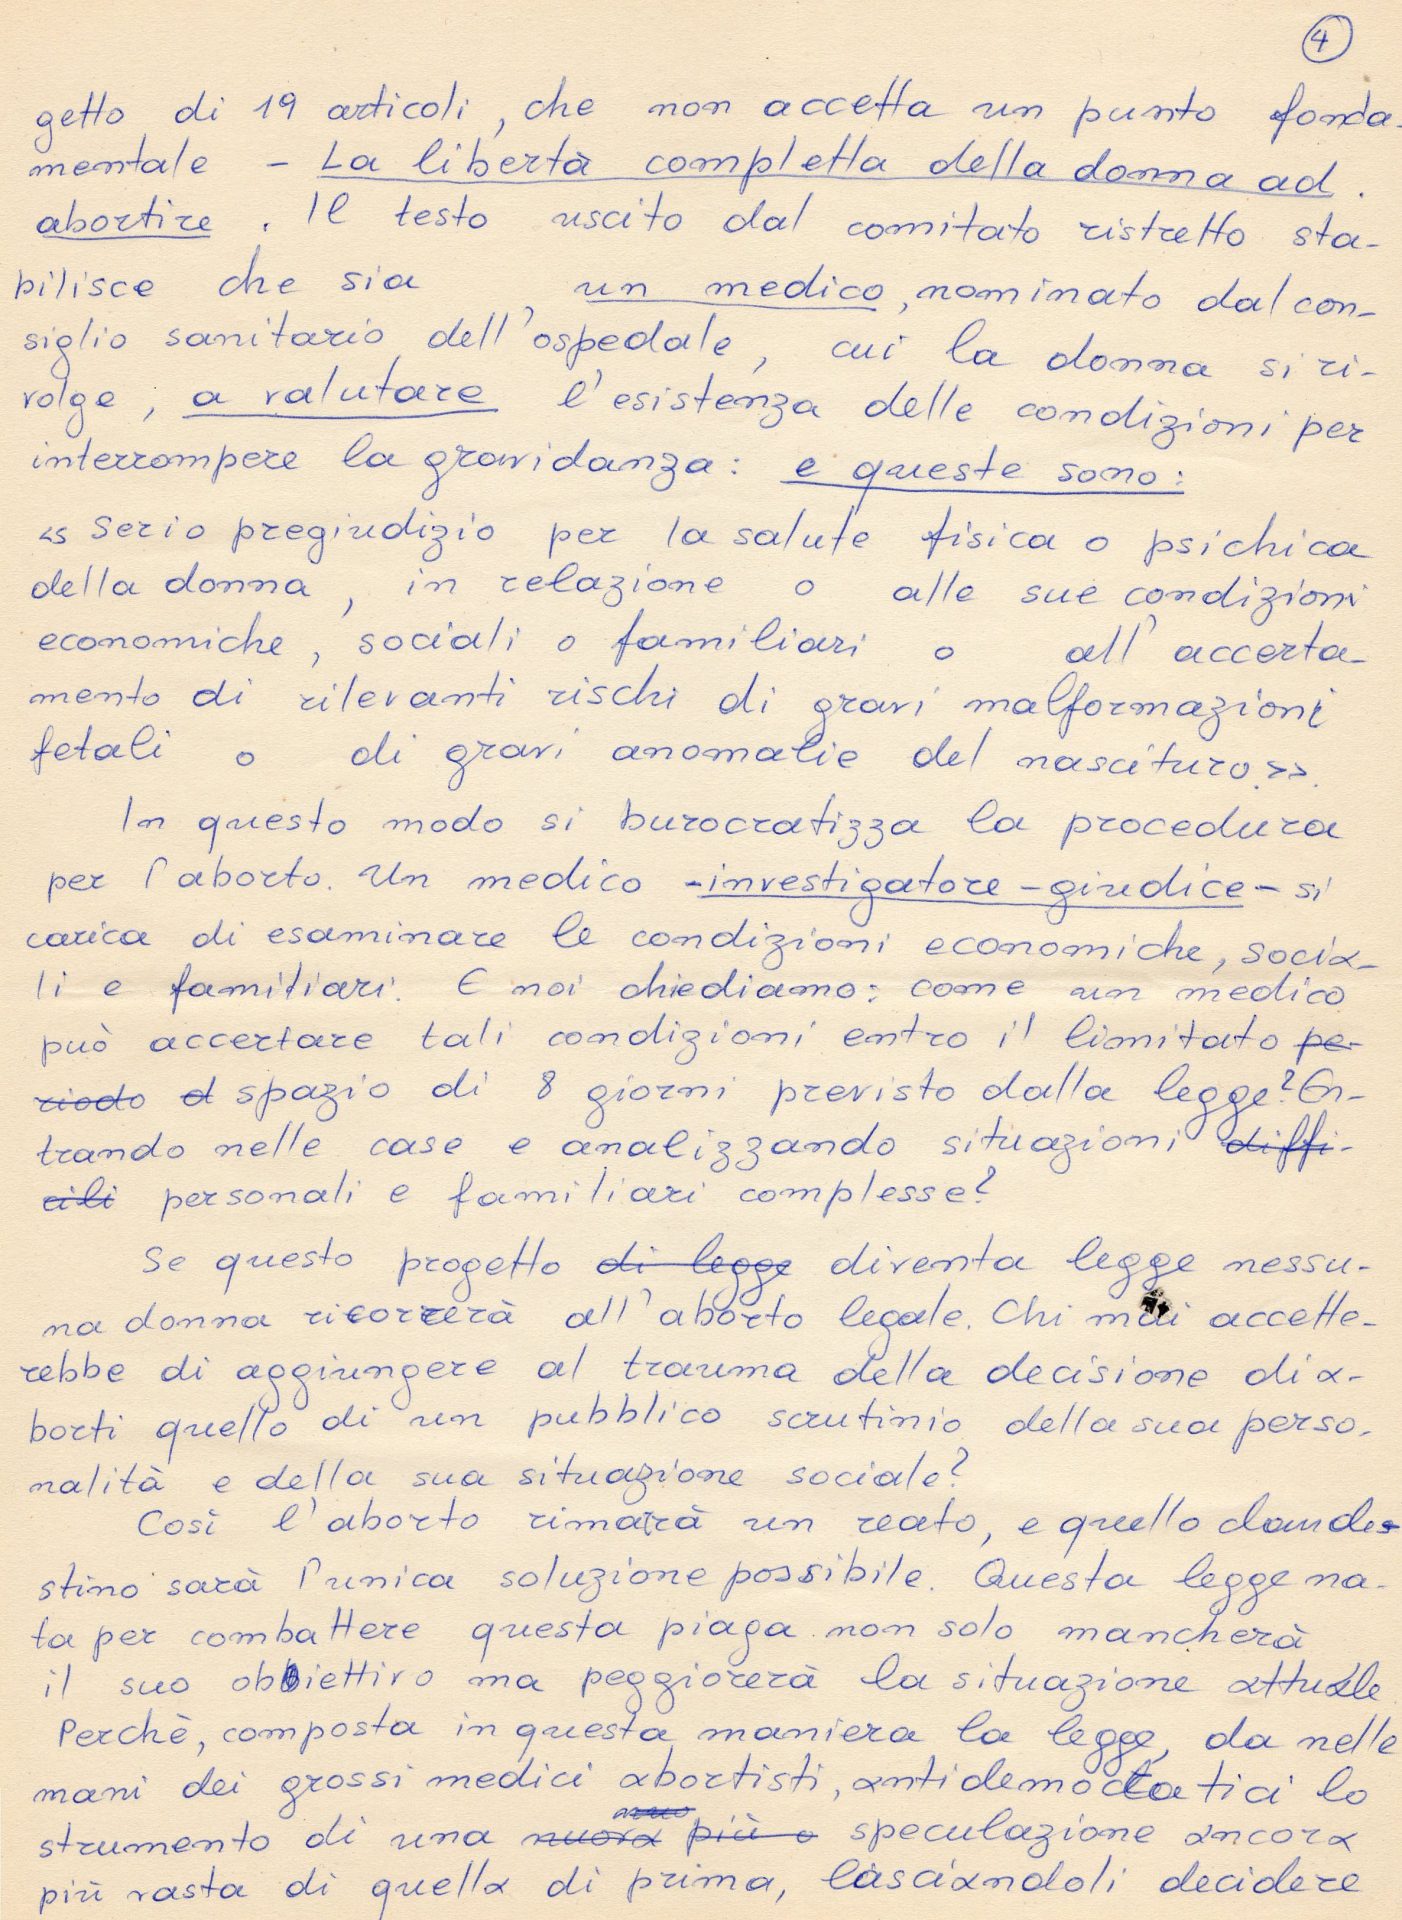 4
getto di 19 articoli, che non accetta un punto fonda-
mentale - La libertà completta della donna ad.
abortire. Il testo uscito dal comitato ristretto sta-
bilisce che sia, un medico, nominato dal con-
siglio sanitario dell'ospedale, cui la donna si ri-
volge, a valutare l'esistenza delle condizioni per
interrompere la gravidanza: e queste sono:
<< Serio pregiudizio per la salute fisica o psichica
della donna, in relazione o alle sue condizioni
economiche, sociali o familiari o all'accerta-
mento di rilevanti rischi di gravi malformazioni
fetali o di gravi anomalie del nascituro.>>.
In questo modo si burocratizza la procedura
per l'aborto. Un medico -investigatore-giudice- si
carica di esaminare le condizioni economiche, socia-
li e familiari. E noi chiediamo: come un medico
può accertare tali condizioni entro il limitato pe-
riodo d spazio di 8 giorni previsto dalla legge? En-
trando nelle case e analizzando situazioni diffi-
cili personali e familiari complesse?
Se questo progetto di legge diventa legge nessu-
na donna ricorrerà all'aborto legale. Chi mai accette-
rebbe di aggiungere al trauma della decisione di a-
borti quello di un pubblico scrutinio della sua perso-
nalità e della sua situazione sociale?
Così l'aborto rimarrà un reato, e quello clande-
stino sarà l'unica soluzione possibile. Questa legge na-
ta per combattere questa piaga non solo mancherà
il suo obbiettivo ma peggiorerà la situazione attuale
Perchè, composta in questa maniera la legge, da nelle
mani dei grossi medici abortisti, antidemocratici lo
strumento di una nuova più o speculazione ancora
più vasta di quella di prima, lasciandoli decidere